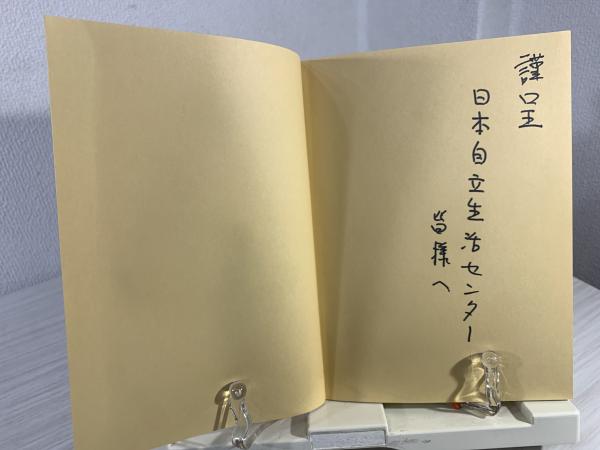 謹呈
日本自立生活センター
皆様へ